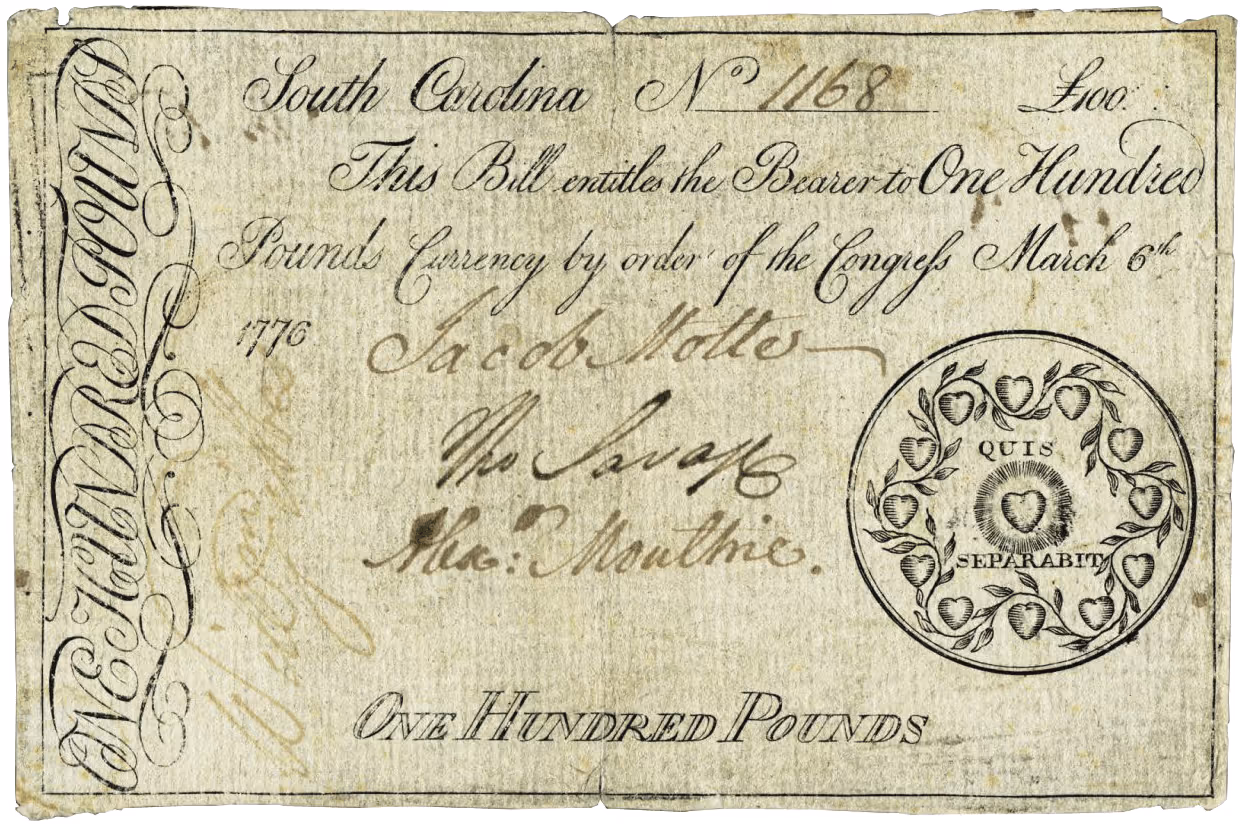 ONE HUNDRED POUNDS
South Carolina No 1168 £100.
This Bill entitles the Bearer to One Hundred
Pounds Currency by order of the Congreſs March 6th
1776
Jacob Motte
Tho Savage
Alexr: Moultrie.
QUIS
SEPARABIT
ONE HUNDRED POUNDS